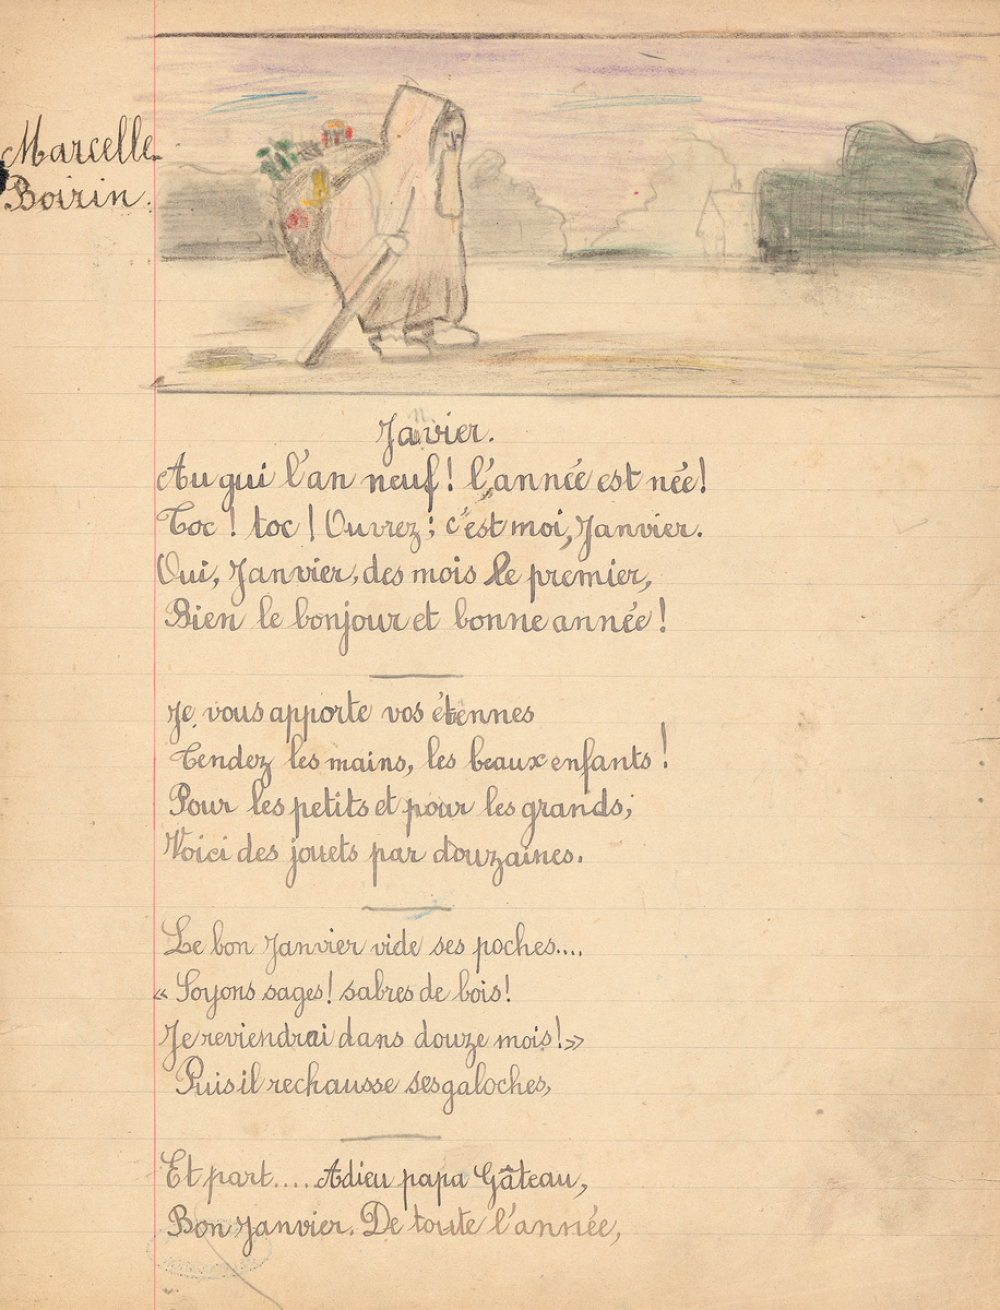 Marcelle
Boirin.
Janvier.
Au gui l'an neuf! l'année est née!
Toc! toc! Ouvrez; c'est moi, Janvier.
Oui, Janvier, des mois le premier,
Bien le bonjour et bonne année!
Je vous apporte vos étennes
Tendez les mains, les beaux enfants!
Pour les petits et pour les grands;
Voici des jouets par douzaines.
Le bon Janvier vide ses poches....
« Soyons sages! sabres de bois!
Je reviendrai dans douze mois!»
Puis il rechausse ses galoches,
Et part..... Adieu papa Gâteau,
Bon Janvier. De toute l'année,